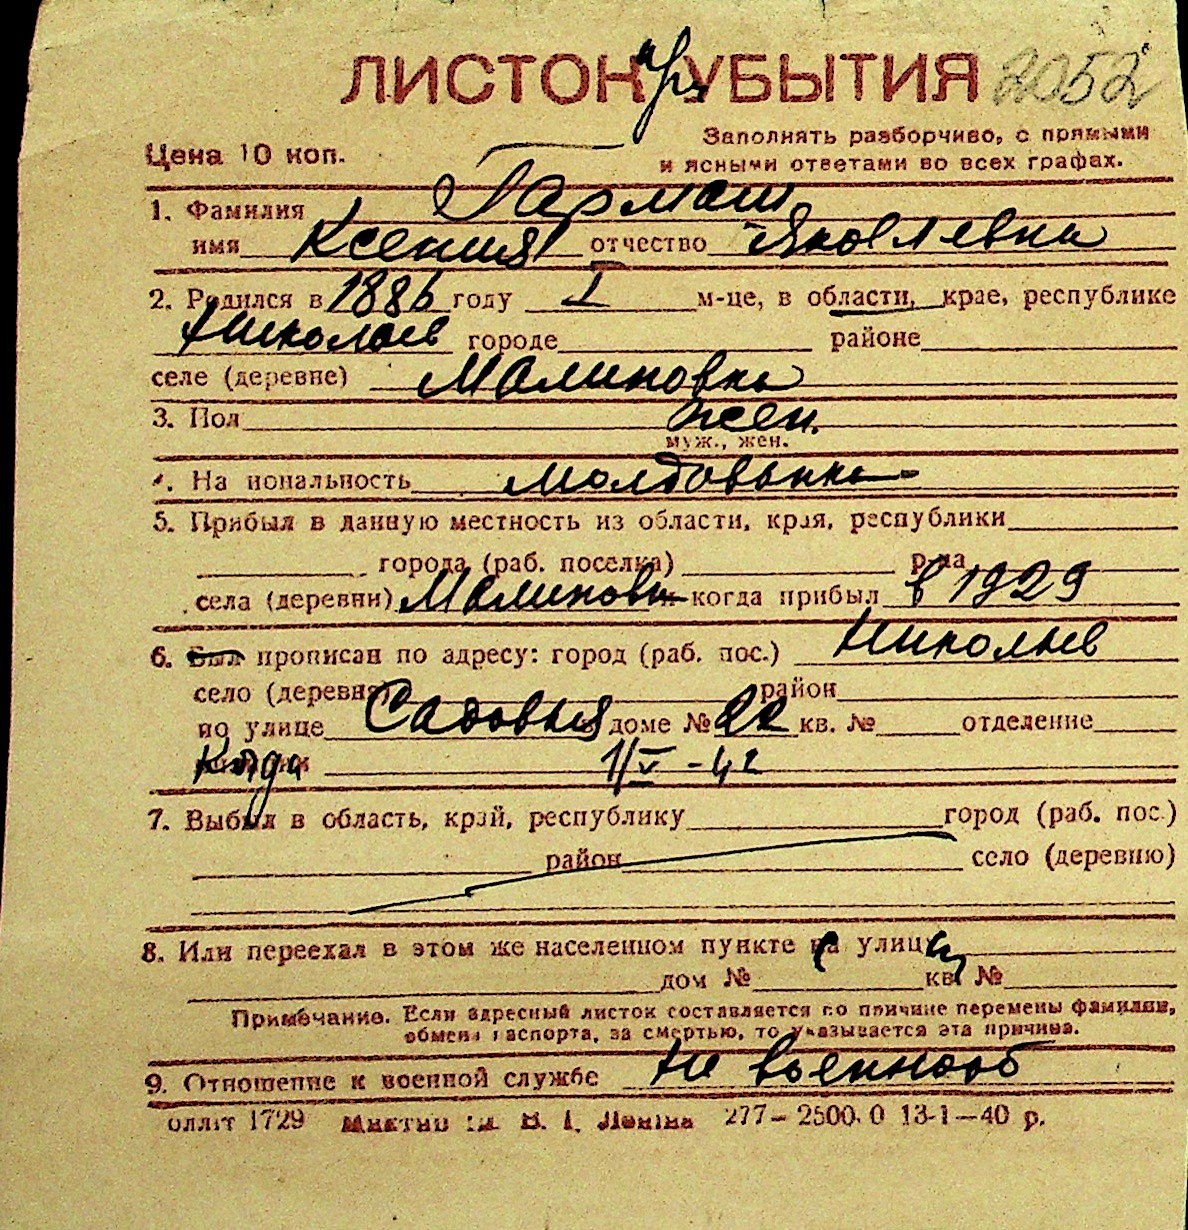 ЛИСТОК "при УБЫТИЯ 2052
Цена 10 коп.
Заполнять разборчиво, с прямыми
и ясными ответами во всех графах.
1. Фамилия Гармаш
имя Ксения отчество Яковлевна
2. Родился в 1886 году I м-це, в области, крае, республике
Николаев городе районе
селе (деревне) Малиновка
3. Пол жен.
муж., жен.
4. На иональность молдованка
5. Прибыл в данную местность из области, края, республики
города (раб. поселка) р-на
села (деревни) Малиновк когда прибыл в 1929
6. Был прописан по адресу: город (раб. пос.) Николаев
село (деревня) район
по улице Садовая доме № 22 кв. № отделение
Когда 1/V-42
7. Выбыл в область, край, республику город (раб. пос.)
район село (деревню)
8. Или переехал в этом же населенном пункте с улицы
дом № кв. №
Примечание. Если адресный листок составляется по причине перемены фамилии,
обмена паспорта, за смертью, то указывается эта причина.
9. Отношение к военной службе Не военнооб
1729 277—2500.0 13-1—40 р.